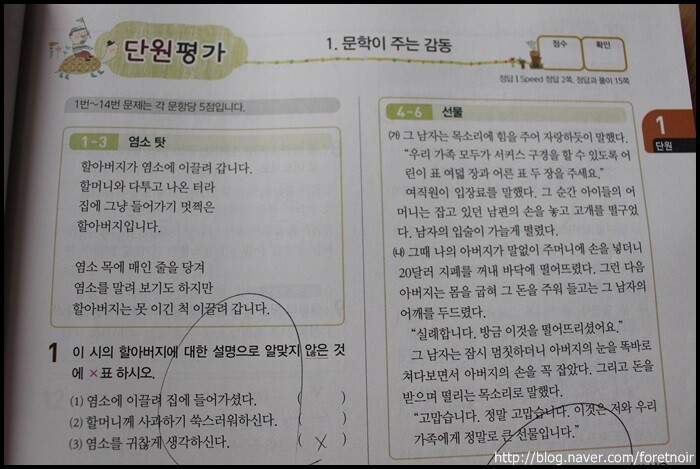 단원평가
1. 문학이 주는 감동
점수
확인
정답 | Speed 정답 2쪽, 정답과 풀이 15쪽
1번~14번 문제는 각 문항당 5점입니다.
1-3 염소 탓
할아버지가 염소에 이끌려 갑니다.
할머니와 다투고 나온 터라
집에 그냥 들어가기 멋쩍은
할아버지입니다.
염소 목에 매인 줄을 당겨
염소를 말려 보기도 하지만
할아버지는 못 이긴 척 이끌려 갑니다.
1 이 시의 할아버지에 대한 설명으로 알맞지 않은 것
에 ×표 하시오.
(1) 염소에 이끌려 집에 들어가셨다. ( )
(2) 할머니께 사과하기 쑥스러워하신다. ( )
(3) 염소를 귀찮게 생각하신다. ( × )
4-6 선물
㈎ 그 남자는 목소리에 힘을 주어 자랑하듯이 말했다.
“우리 가족 모두가 서커스 구경을 할 수 있도록 어
린이 표 여덟 장과 어른 표 두 장을 주세요.”
여직원이 입장료를 말했다. 그 순간 아이들의 어
머니는 잡고 있던 남편의 손을 놓고 고개를 떨구었
다. 남자의 입술이 가늘게 떨렸다.
㈏ 그때 나의 아버지가 말없이 주머니에 손을 넣더니
20달러 지폐를 꺼내 바닥에 떨어뜨렸다. 그런 다음
아버지는 몸을 굽혀 그 돈을 주워 들고는 그 남자의
어깨를 두드렸다.
“실례합니다. 방금 이것을 떨어뜨리셨어요.”
그 남자는 잠시 멈칫하더니 아버지의 눈을 똑바로
쳐다보면서 아버지의 손을 꼭 잡았다. 그리고 돈을
받으며 떨리는 목소리로 말했다.
“고맙습니다. 정말 고맙습니다. 이것은 저와 우리
가족에게 정말로 큰 선물입니다.”
1
단원
http://blog.naver.com/foretnoir